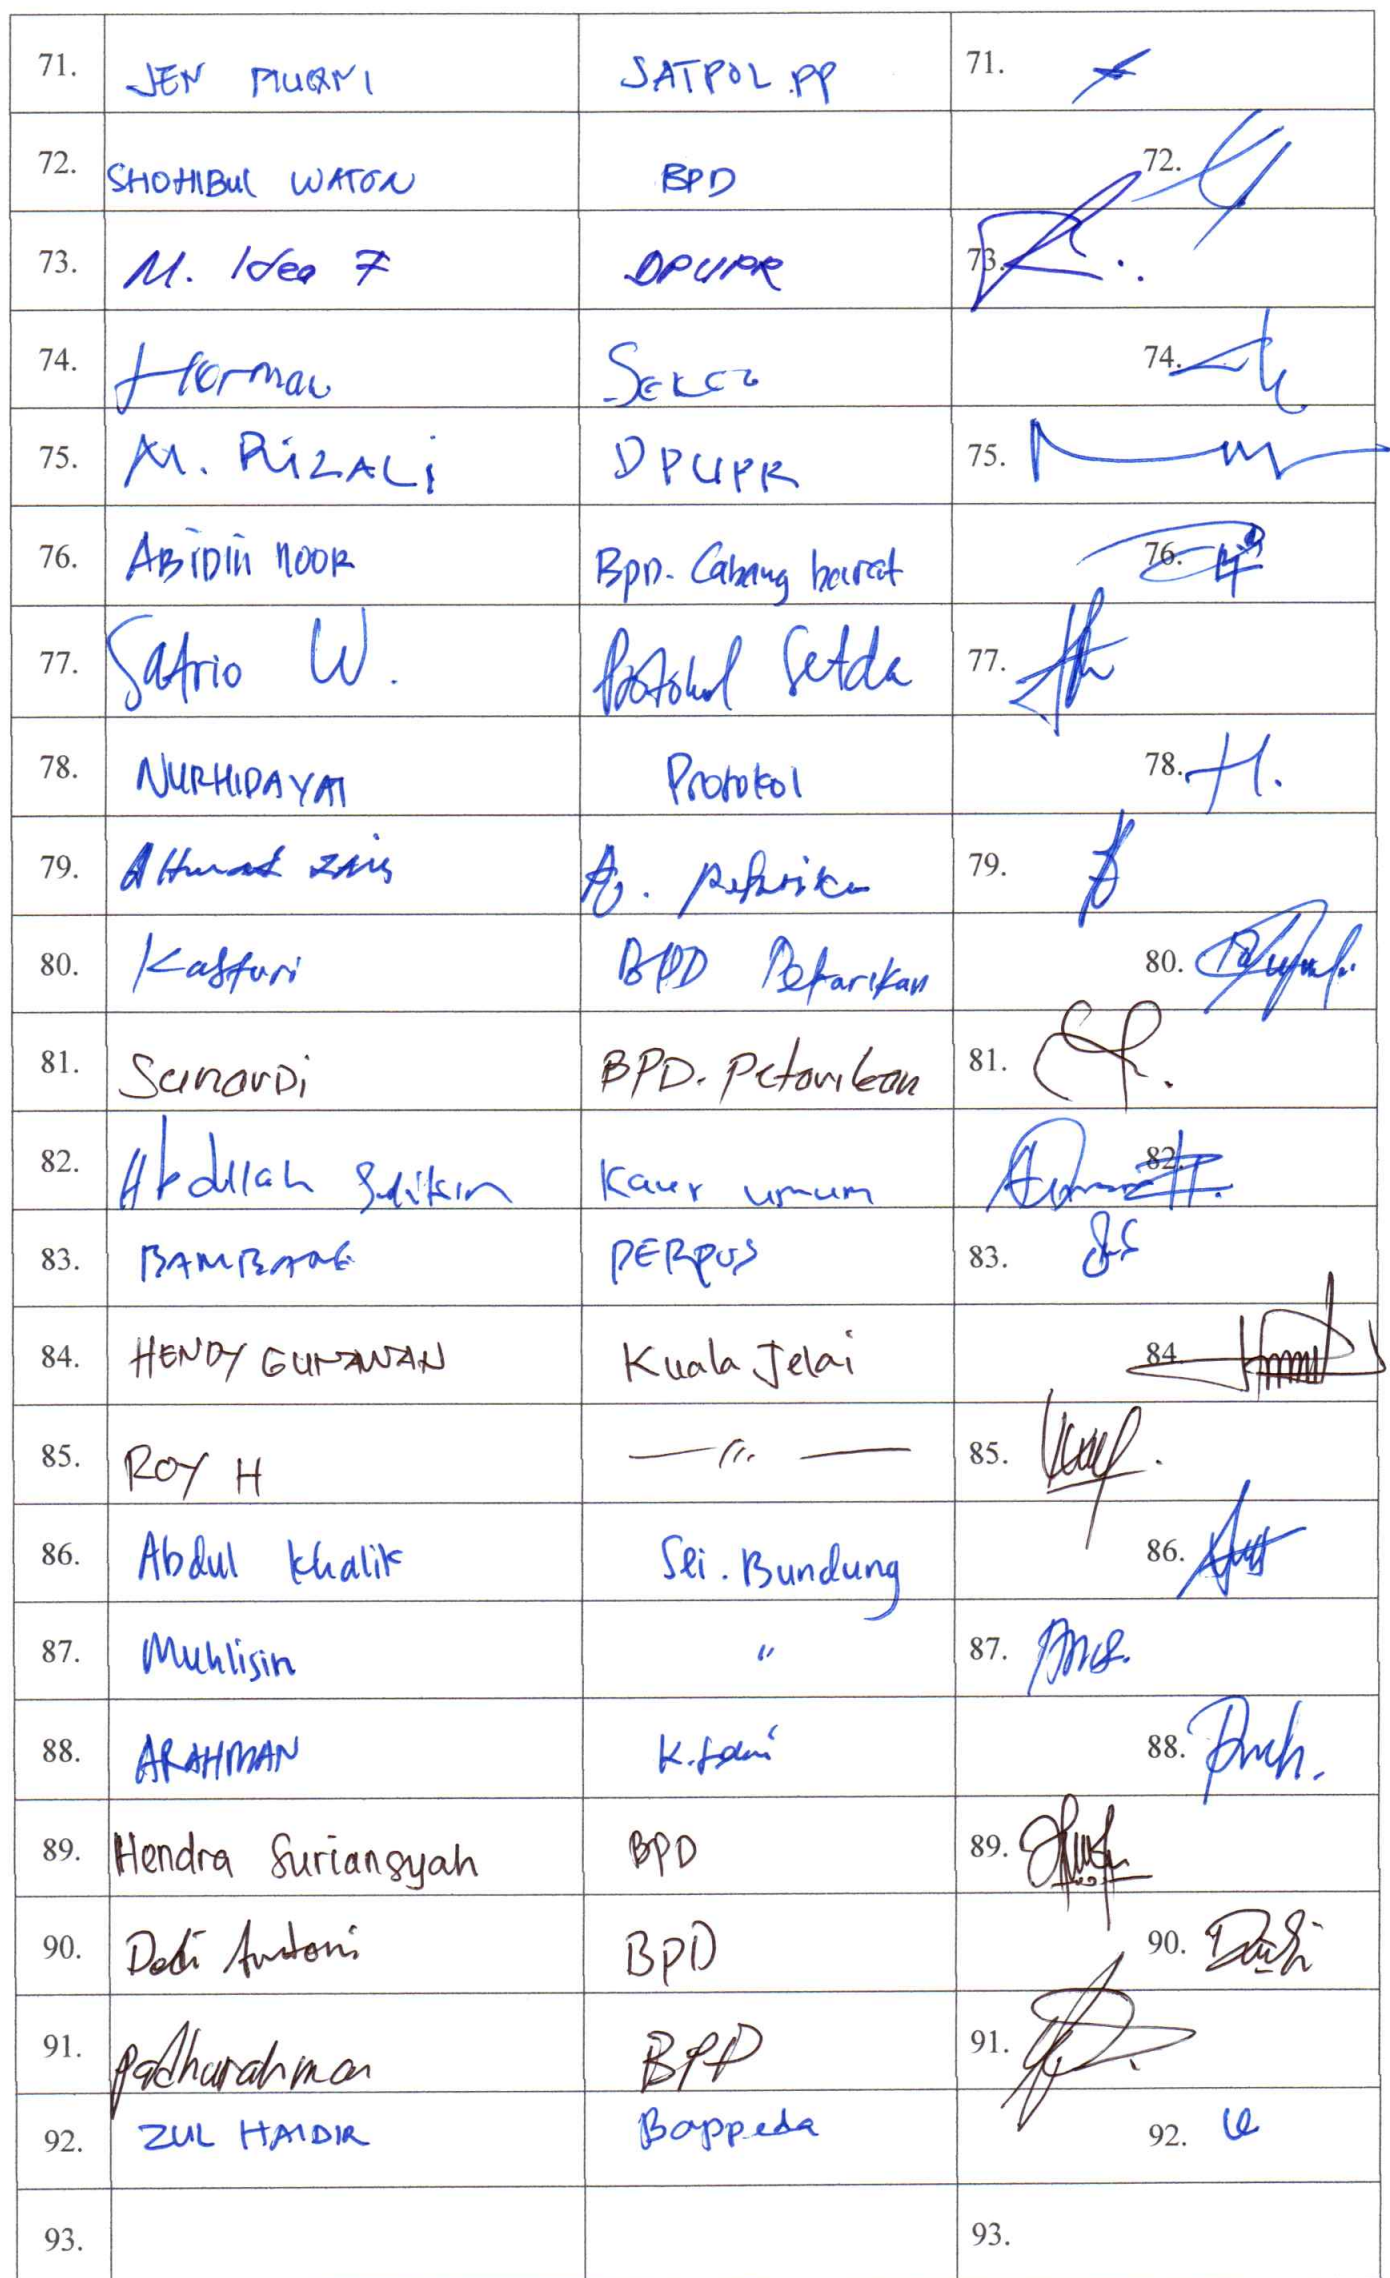 71. JEN MUQNI SATPOL.PP 71.
72. SHOHIBUL WATON BPD 72.
73. M. Idea F DPUPR 73.
74. Herman 74.
75. M. RIZALI DPUPR 75.
76. ABIDIN NOOR BPD. Cabang barat 76.
77. Satrio W. Protokol Setda 77.
78. NURHIDAYAT Protokol 78.
79. 79.
80. Kasturi BPD Petarikan 80.
81. SunarDi BPD. Petarikan 81.
82. Abdullah Sulikin Kaur umum 82.
83. BAMBANG PERPUS 83.
84. HENDY GUNAWAN Kuala Jelai 84.
85. ROY H — 〃 — 85.
86. Abdul Khalik Sei. Bundung 86.
87. Muhlisin 〃 87.
88. ARAHMAN 88.
89. Hendra Suriansyah BPD 89.
90. Dedi Antoni BPD 90.
91. Padhurahman BPD 91.
92. ZUL HAIDIR Bappeda 92.
93. 93.